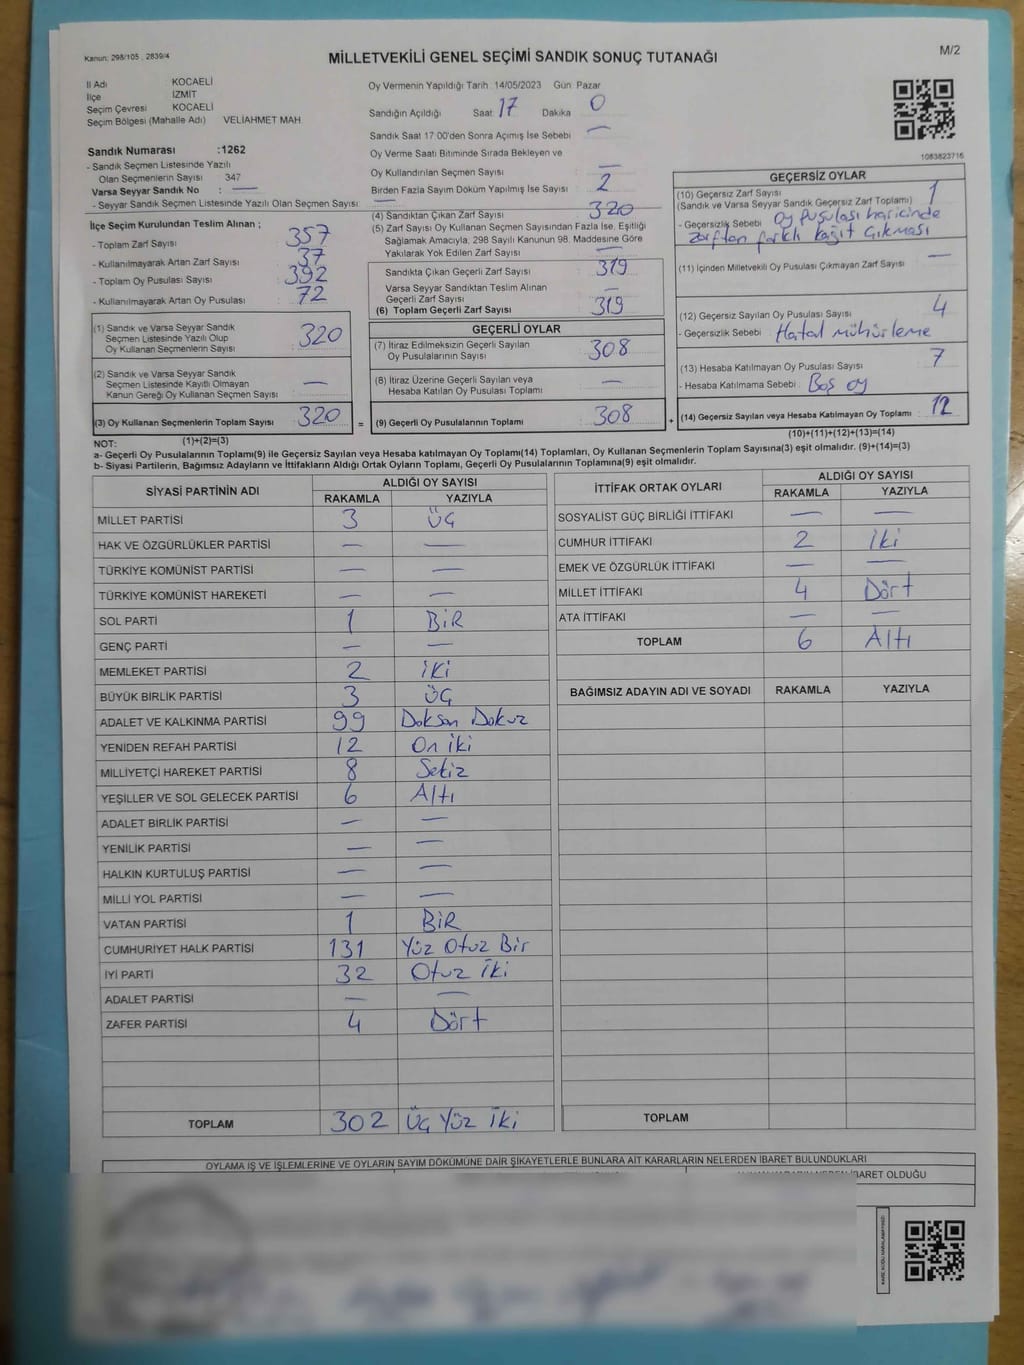 Kanun: 298/105 , 2839/4
MİLLETVEKİLİ GENEL SEÇİMİ SANDIK SONUÇ TUTANAĞI
M/2
İl Adı KOCAELİ
İlçe İZMİT
Seçim Çevresi KOCAELİ
Seçim Bölgesi (Mahalle Adı) VELİAHMET MAH.
Sandık Numarası :1262
- Sandık Seçmen Listesinde Yazılı
Olan Seçmenlerin Sayısı 347
Varsa Seyyar Sandık No : —
- Seyyar Sandık Seçmen Listesinde Yazılı Olan Seçmen Sayısı: —
Oy Vermenin Yapıldığı Tarih : 14/05/2023 Gün: Pazar
Sandığın Açıldığı Saat 17 Dakika 0
Sandık Saat 17:00'den Sonra Açımış İse Sebebi —
Oy Verme Saati Bitiminde Sırada Bekleyen ve
Oy Kullandırılan Seçmen Sayısı —
Birden Fazla Sayım Döküm Yapılmış İse Sayısı 2
1083823716
İlçe Seçim Kurulundan Teslim Alınan ;
- Toplam Zarf Sayısı 357
- Kullanılmayarak Artan Zarf Sayısı 37
- Toplam Oy Pusulası Sayısı 392
- Kullanılmayarak Artan Oy Pusulası 72
(1) Sandık ve Varsa Seyyar Sandık
Seçmen Listesinde Yazılı Olup
Oy Kullanan Seçmenlerin Sayısı 320
(2) Sandık ve Varsa Seyyar Sandık
Seçmen Listesinde Kayıtlı Olmayan
Kanun Gereği Oy Kullanan Seçmen Sayısı —
(3) Oy Kullanan Seçmenlerin Toplam Sayısı 320 =
(4) Sandıktan Çıkan Zarf Sayısı 320
(5) Zarf Sayısı Oy Kullanan Seçmen Sayısından Fazla İse, Eşitliği
Sağlamak Amacıyla; 298 Sayılı Kanunun 98. Maddesine Göre
Yakılarak Yok Edilen Zarf Sayısı —
Sandıkta Çıkan Geçerli Zarf Sayısı 319
Varsa Seyyar Sandıktan Teslim Alınan
Geçerli Zarf Sayısı —
(6) Toplam Geçerli Zarf Sayısı 319
GEÇERLİ OYLAR
(7) İtiraz Edilmeksizin Geçerli Sayılan
Oy Pusulalarının Sayısı 308
(8) İtiraz Üzerine Geçerli Sayılan veya
Hesaba Katılan Oy Pusulası Toplamı —
(9) Geçerli Oy Pusulalarının Toplamı 308 +
GEÇERSİZ OYLAR
(10) Geçersiz Zarf Sayısı 1
(Sandık ve Varsa Seyyar Sandık Geçersiz Zarf Toplamı)
- Geçersizlik Sebebi Oy pusulası haricinde
Zarftan farklı kağıt çıkması
(11) İçinden Milletvekili Oy Pusulası Çıkmayan Zarf Sayısı —
(12) Geçersiz Sayılan Oy Pusulası Sayısı 4
- Geçersizlik Sebebi Hatalı mühürleme
(13) Hesaba Katılmayan Oy Pusulası Sayısı 7
- Hesaba Katılmama Sebebi Boş oy
(14) Geçersiz Sayılan veya Hesaba Katılmayan Oy Toplamı 12
NOT: (1)+(2)=(3) (10)+(11)+(12)+(13)=(14)
a- Geçerli Oy Pusulalarının Toplamı(9) ile Geçersiz Sayılan veya Hesaba katılmayan Oy Toplamı(14) Toplamları, Oy Kullanan Seçmenlerin Toplam Sayısına(3) eşit olmalıdır. (9)+(14)=(3)
b- Siyasi Partilerin, Bağımsız Adayların ve İttifakların Aldığı Ortak Oyların Toplamı, Geçerli Oy Pusulalarının Toplamına(9) eşit olmalıdır.
SİYASİ PARTİNİN ADI ALDIĞI OY SAYISI
RAKAMLA YAZIYLA
MİLLET PARTİSİ 3 Üç
HAK VE ÖZGÜRLÜKLER PARTİSİ — —
TÜRKİYE KOMÜNİST PARTİSİ — —
TÜRKİYE KOMÜNİST HAREKETİ — —
SOL PARTİ 1 BİR
GENÇ PARTİ — —
MEMLEKET PARTİSİ 2 iki
BÜYÜK BİRLİK PARTİSİ 3 Üç
ADALET VE KALKINMA PARTİSİ 99 Doksan Dokuz
YENİDEN REFAH PARTİSİ 12 On iki
MİLLİYETÇİ HAREKET PARTİSİ 8 Sekiz
YEŞİLLER VE SOL GELECEK PARTİSİ 6 Altı
ADALET BİRLİK PARTİSİ — —
YENİLİK PARTİSİ — —
HALKIN KURTULUŞ PARTİSİ — —
MİLLİ YOL PARTİSİ — —
VATAN PARTİSİ 1 BİR
CUMHURİYET HALK PARTİSİ 131 Yüz Otuz Bir
İYİ PARTİ 32 Otuz İki
ADALET PARTİSİ — —
ZAFER PARTİSİ 4 Dört
TOPLAM 302 Üç Yüz İki
İTTİFAK ORTAK OYLARI ALDIĞI OY SAYISI
RAKAMLA YAZIYLA
SOSYALİST GÜÇ BİRLİĞİ İTTİFAKI — —
CUMHUR İTTİFAKI 2 İki
EMEK VE ÖZGÜRLÜK İTTİFAKI — —
MİLLET İTTİFAKI 4 Dört
ATA İTTİFAKI — —
TOPLAM 6 Altı
BAĞIMSIZ ADAYIN ADI VE SOYADI RAKAMLA YAZIYLA
TOPLAM
OYLAMA İŞ VE İŞLEMLERİNE VE OYLARIN SAYIM DÖKÜMÜNE DAİR ŞİKAYETLERLE BUNLARA AİT KARARLARIN NELERDEN İBARET BULUNDUKLARI
İBARET OLDUĞU